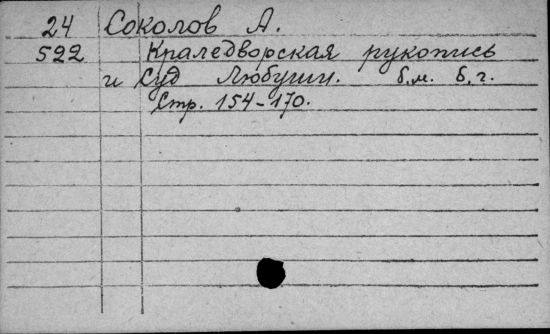 24 Соколов А.
522 Краледворская рукопись
и Суд Любуши. б.м. б.г.
Стр. 154-170.